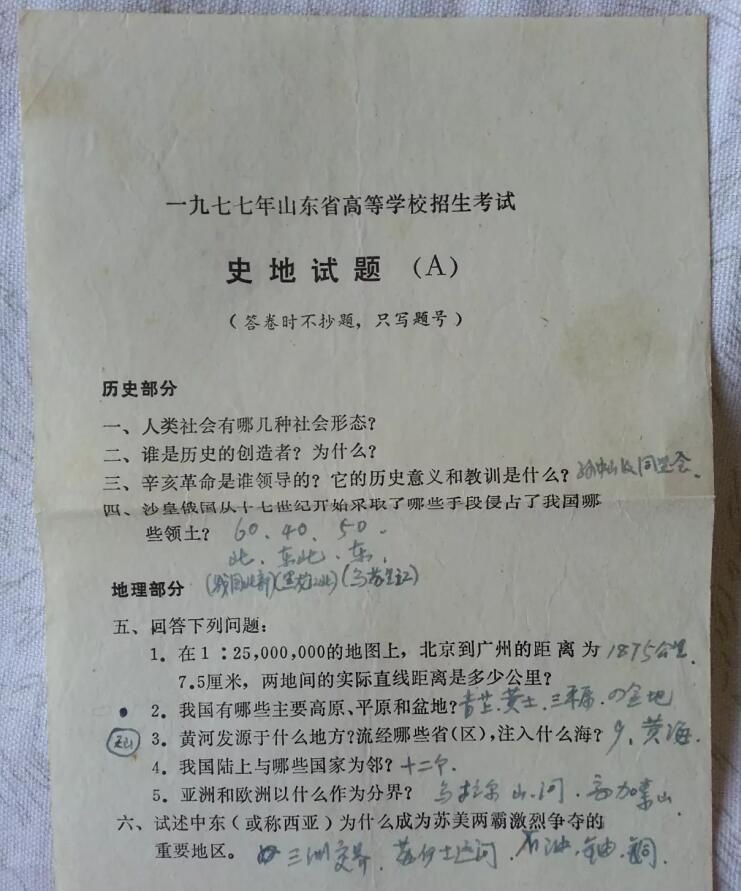 一九七七年山东省高等学校招生考试
史地试题 (A)
(答卷时不抄题，只写题号)
历史部分
一、人类社会有哪几种社会形态？
二、谁是历史的创造者？为什么？
三、辛亥革命是谁领导的？它的历史意义和教训是什么？孙中山及同盟会.
四、沙皇俄国从十七世纪开始采取了哪些手段侵占了我国哪
些领土？ 60、40、50.
北、东北、东.
地理部分
五、回答下列问题：
1. 在1：25,000,000的地图上，北京到广州的距离为 1875公里.
7.5厘米，两地间的实际直线距离是多少公里？
2. 我国有哪些主要高原、平原和盆地？
3. 黄河发源于什么地方？流经哪些省(区)，注入什么海？9、黄海.
4. 我国陆上与哪些国家为邻？十二个.
5. 亚洲和欧洲以什么作为分界？ 乌拉尔 山、河、高加索山
六、试述中东(或称西亚)为什么成为苏美两霸激烈争夺的
重要地区。 三洲交界 苏伊士运河、石油、铀、铜.